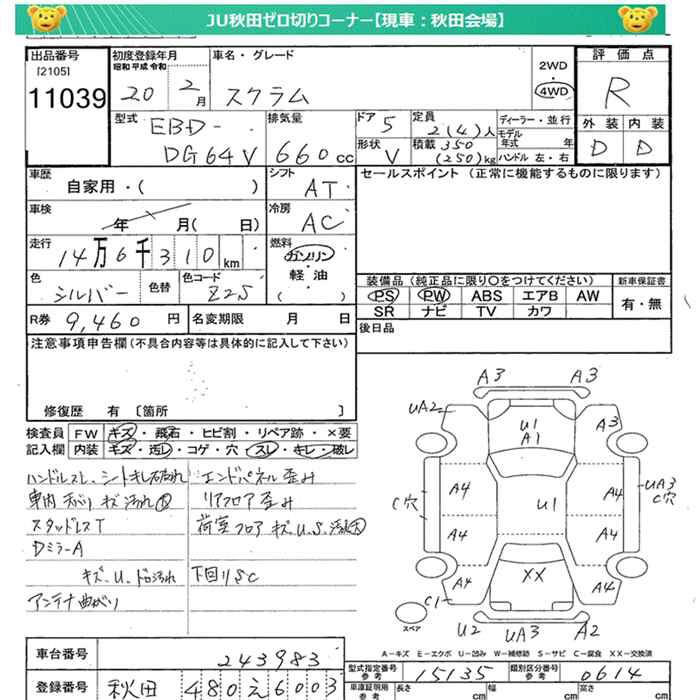 JU秋田ゼロ切りコーナー【現車：秋田会場】
出品番号
[2105]
11039
初度登録年月
昭和 平成 令和
20 2月
車名・グレード
スクラム
2WD
4WD
評価点
R
外装 内装
D D
型式
EBD-
DG64V
排気量
660cc
ドア 5
形状 V
定員
2(4)人
積載 350
(250)kg
ディーラー・並行
モデル
年式 年
ハンドル 左・右
車歴
自家用・( )
シフト
AT
セールスポイント (正常に機能するものに限ります)
車検
年 月( 日)
冷房
AC
走行
14万6千310km
燃料
ガソリン
軽・油
( )
色
シルバー
色替
色コード
Z2S
装備品(純正品に限り〇をつけてください)
新車保証書
PS PW ABS エアB AW
SR ナビ TV カワ
有・無
R券 9,460 円
名変期限 月 日
後日品
注意事項申告欄(不具合内容等は具体的に記入して下さい)
修復歴 有 [箇所 ]
検査員
記入欄
FW キズ・飛石・ヒビ割・リペア跡・×要
内装 キズ・汚レ・コゲ・穴・スレ・キレ・破レ
ハンドルスレ、シートキレ汚れ
エンドパネル歪み
リアフロア歪み
スタッドレスT
荷室フロア キズ.U.S.汚れ大
DミラーA
キズ.U.ドロ汚れ
下回りSC
アンテナ曲がり
A3 A3
UA2
U1
A1
A3
A4 A4
UA3
C穴
C穴
U1
A4 A4
A4 XX A4
C1
スペア
U2 UA3 A2
A－キズ E－エクボ U－凹み W－補修跡 S－サビ C－腐食 XX－交換済
車台番号
243983
登録番号
秋田 480え6003
型式指定番号
参考
15135
類別区分番号
参考
0614
車庫証明用
参考
長さ cm
幅 cm
高さ cm